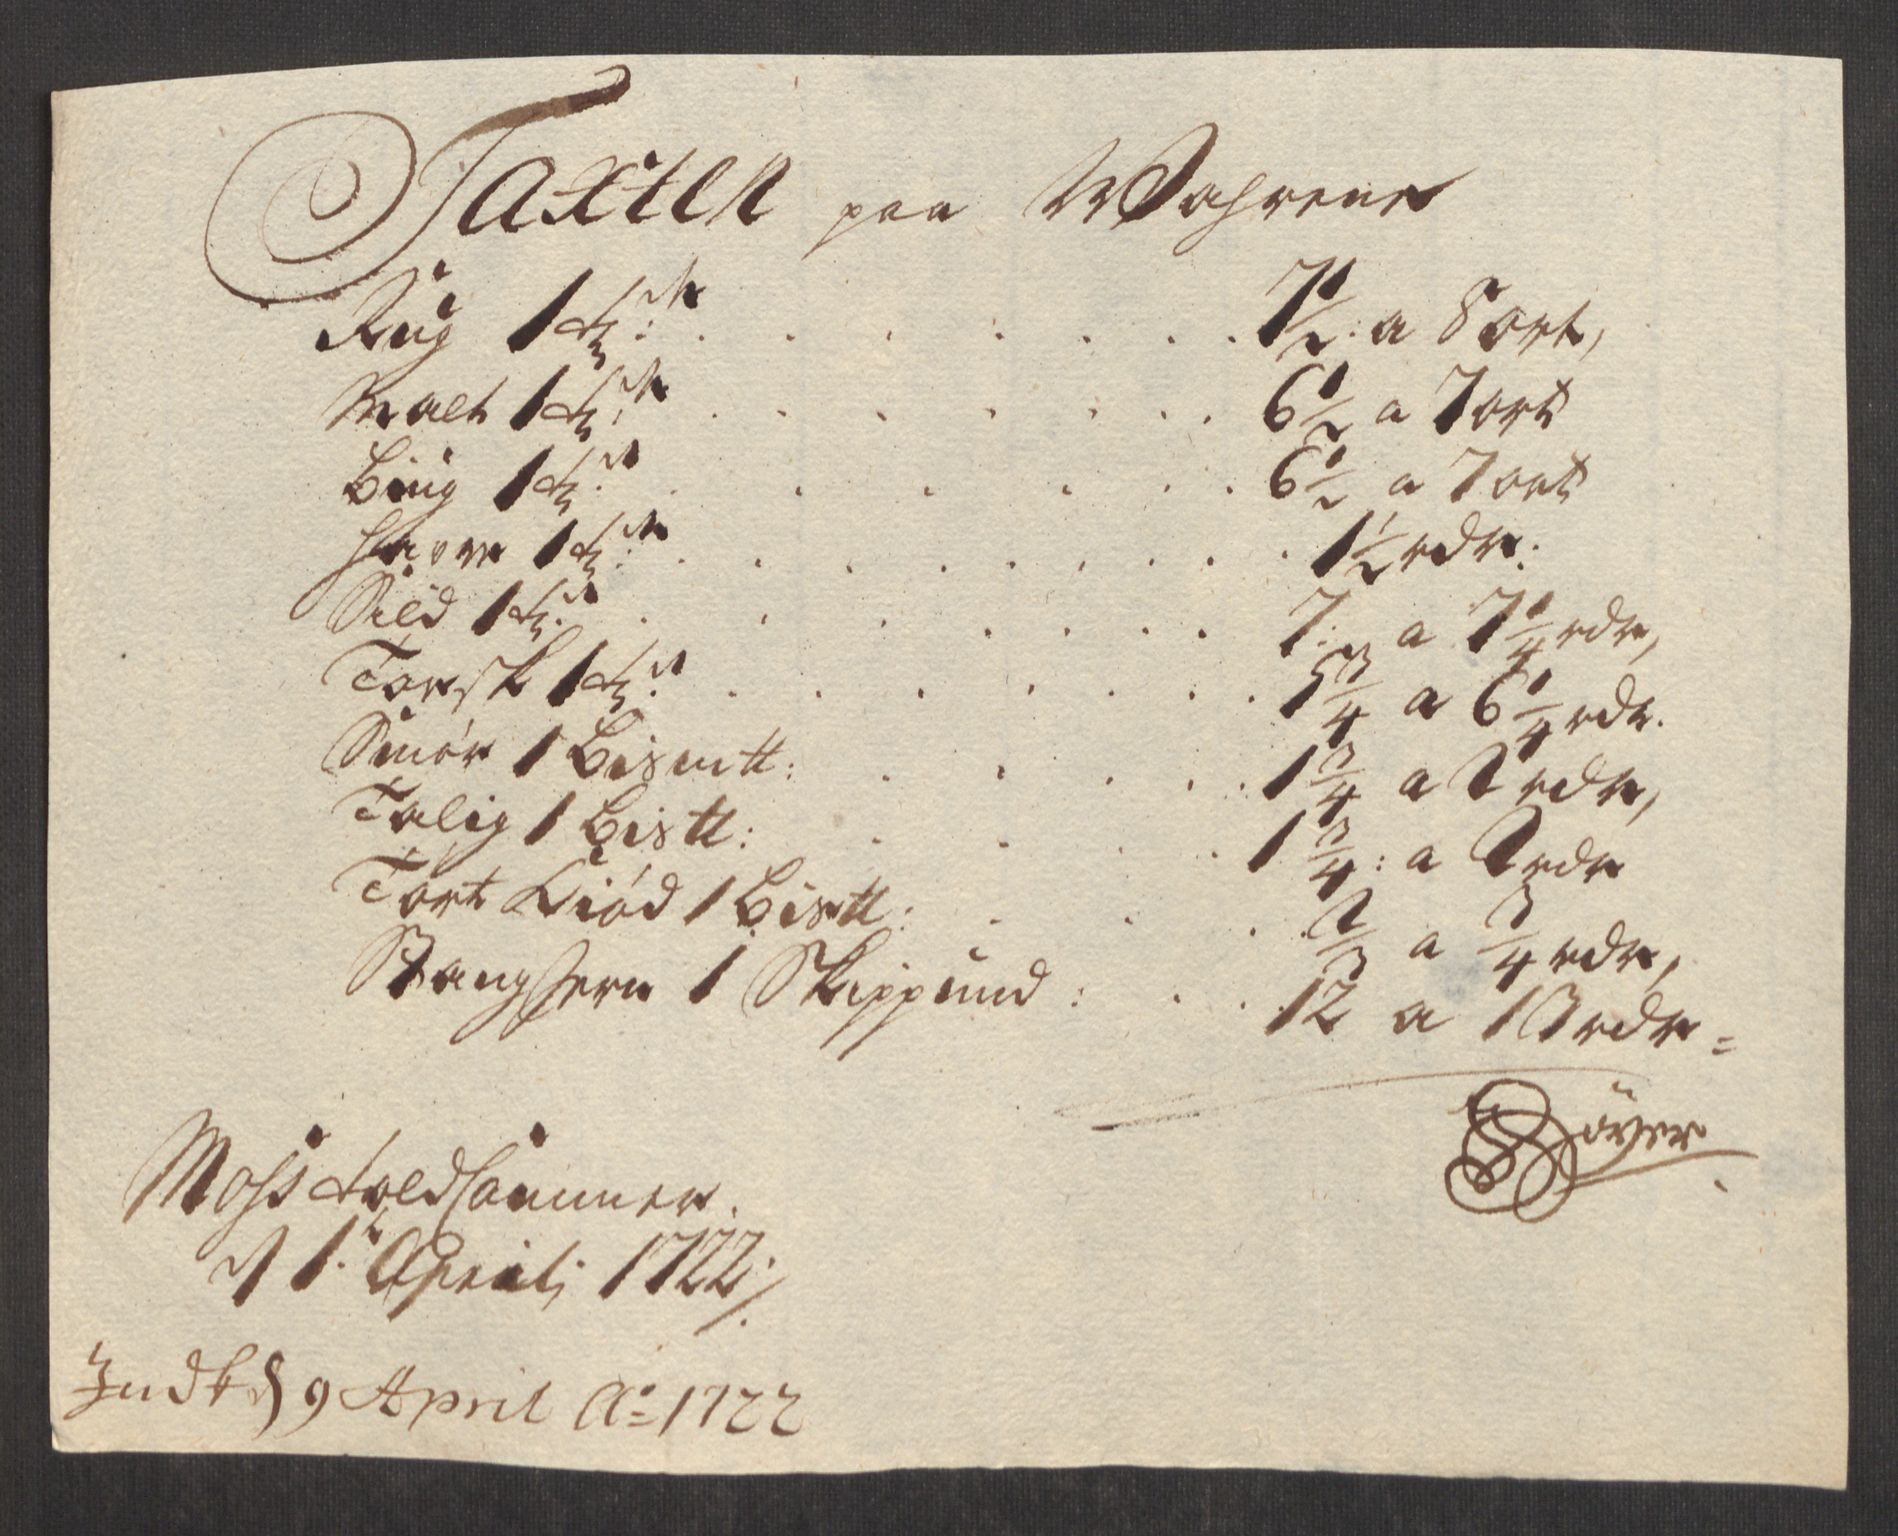 Taxten paa Wahrene
Rug 1 td: . . . . . . . 7½: a 8 ort,
Malt 1 td: . . . . . . . 6½ a 7 ort
Biug 1 td: . . . . . . 6½ a 7 ort
Havre 1 td: . . . . . . . . 1½ rdr:
Sild 1 td: . . . . . . . 7: a 7¼ rdr,
Torsk 1 td: . . . . . . . 5¾ a 6¼ rdr.
Smór 1 Bismtt: . . . . . 1¾ a 2 rdr,
Talig 1 Bistt: . . . . 1¾: a 2 rdr
Tört Kiód 1 Bistt: . . . ⅔ a ¾ rdr,
Stangjern 1 Skippund: . . 12 a 13 rdr=
Söyer
Moss toldCammer.
d 1. Aprili 1722:/.
Indk d 9 April Ao= 1722